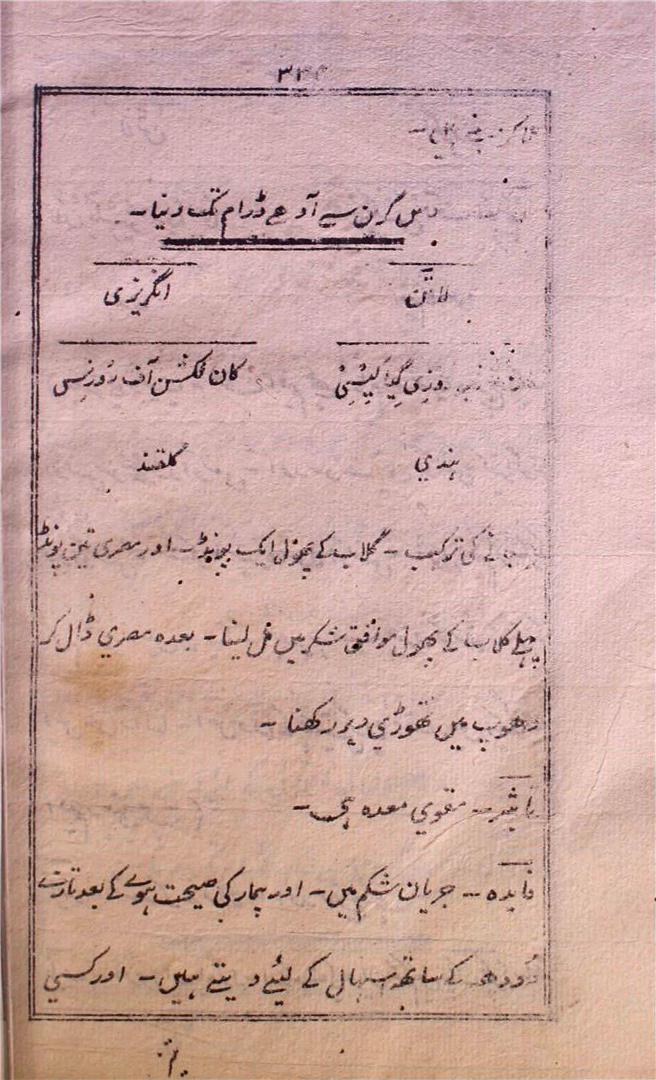 دس گرن سے آدھے ڈرام تک دینا۔
لاتن انگریزی
روزی گیا لیٹنی کان فکشن آف روزنس
ہندي گلقند
بنانے کی ترکیب ۔ گلاب کے پھول ایک پونڈ ۔ اور مصری تین پونڈ
پہلے گلاب کے پھول موافق شکر میں مل لینا ۔ بعدہ مصري ڈال کر
دھوپ میں تھوڑي دیر رکھنا ۔
تاثیر ۔ مقوي معدہ ہی ۔
فایدہ ۔ جریان شکم میں ۔ اور بیمار کی صیحت ہونے کے بعد تازے
دودھ کے ساتھ سہال کے لیئے دیتے ہیں ۔ اور کسي